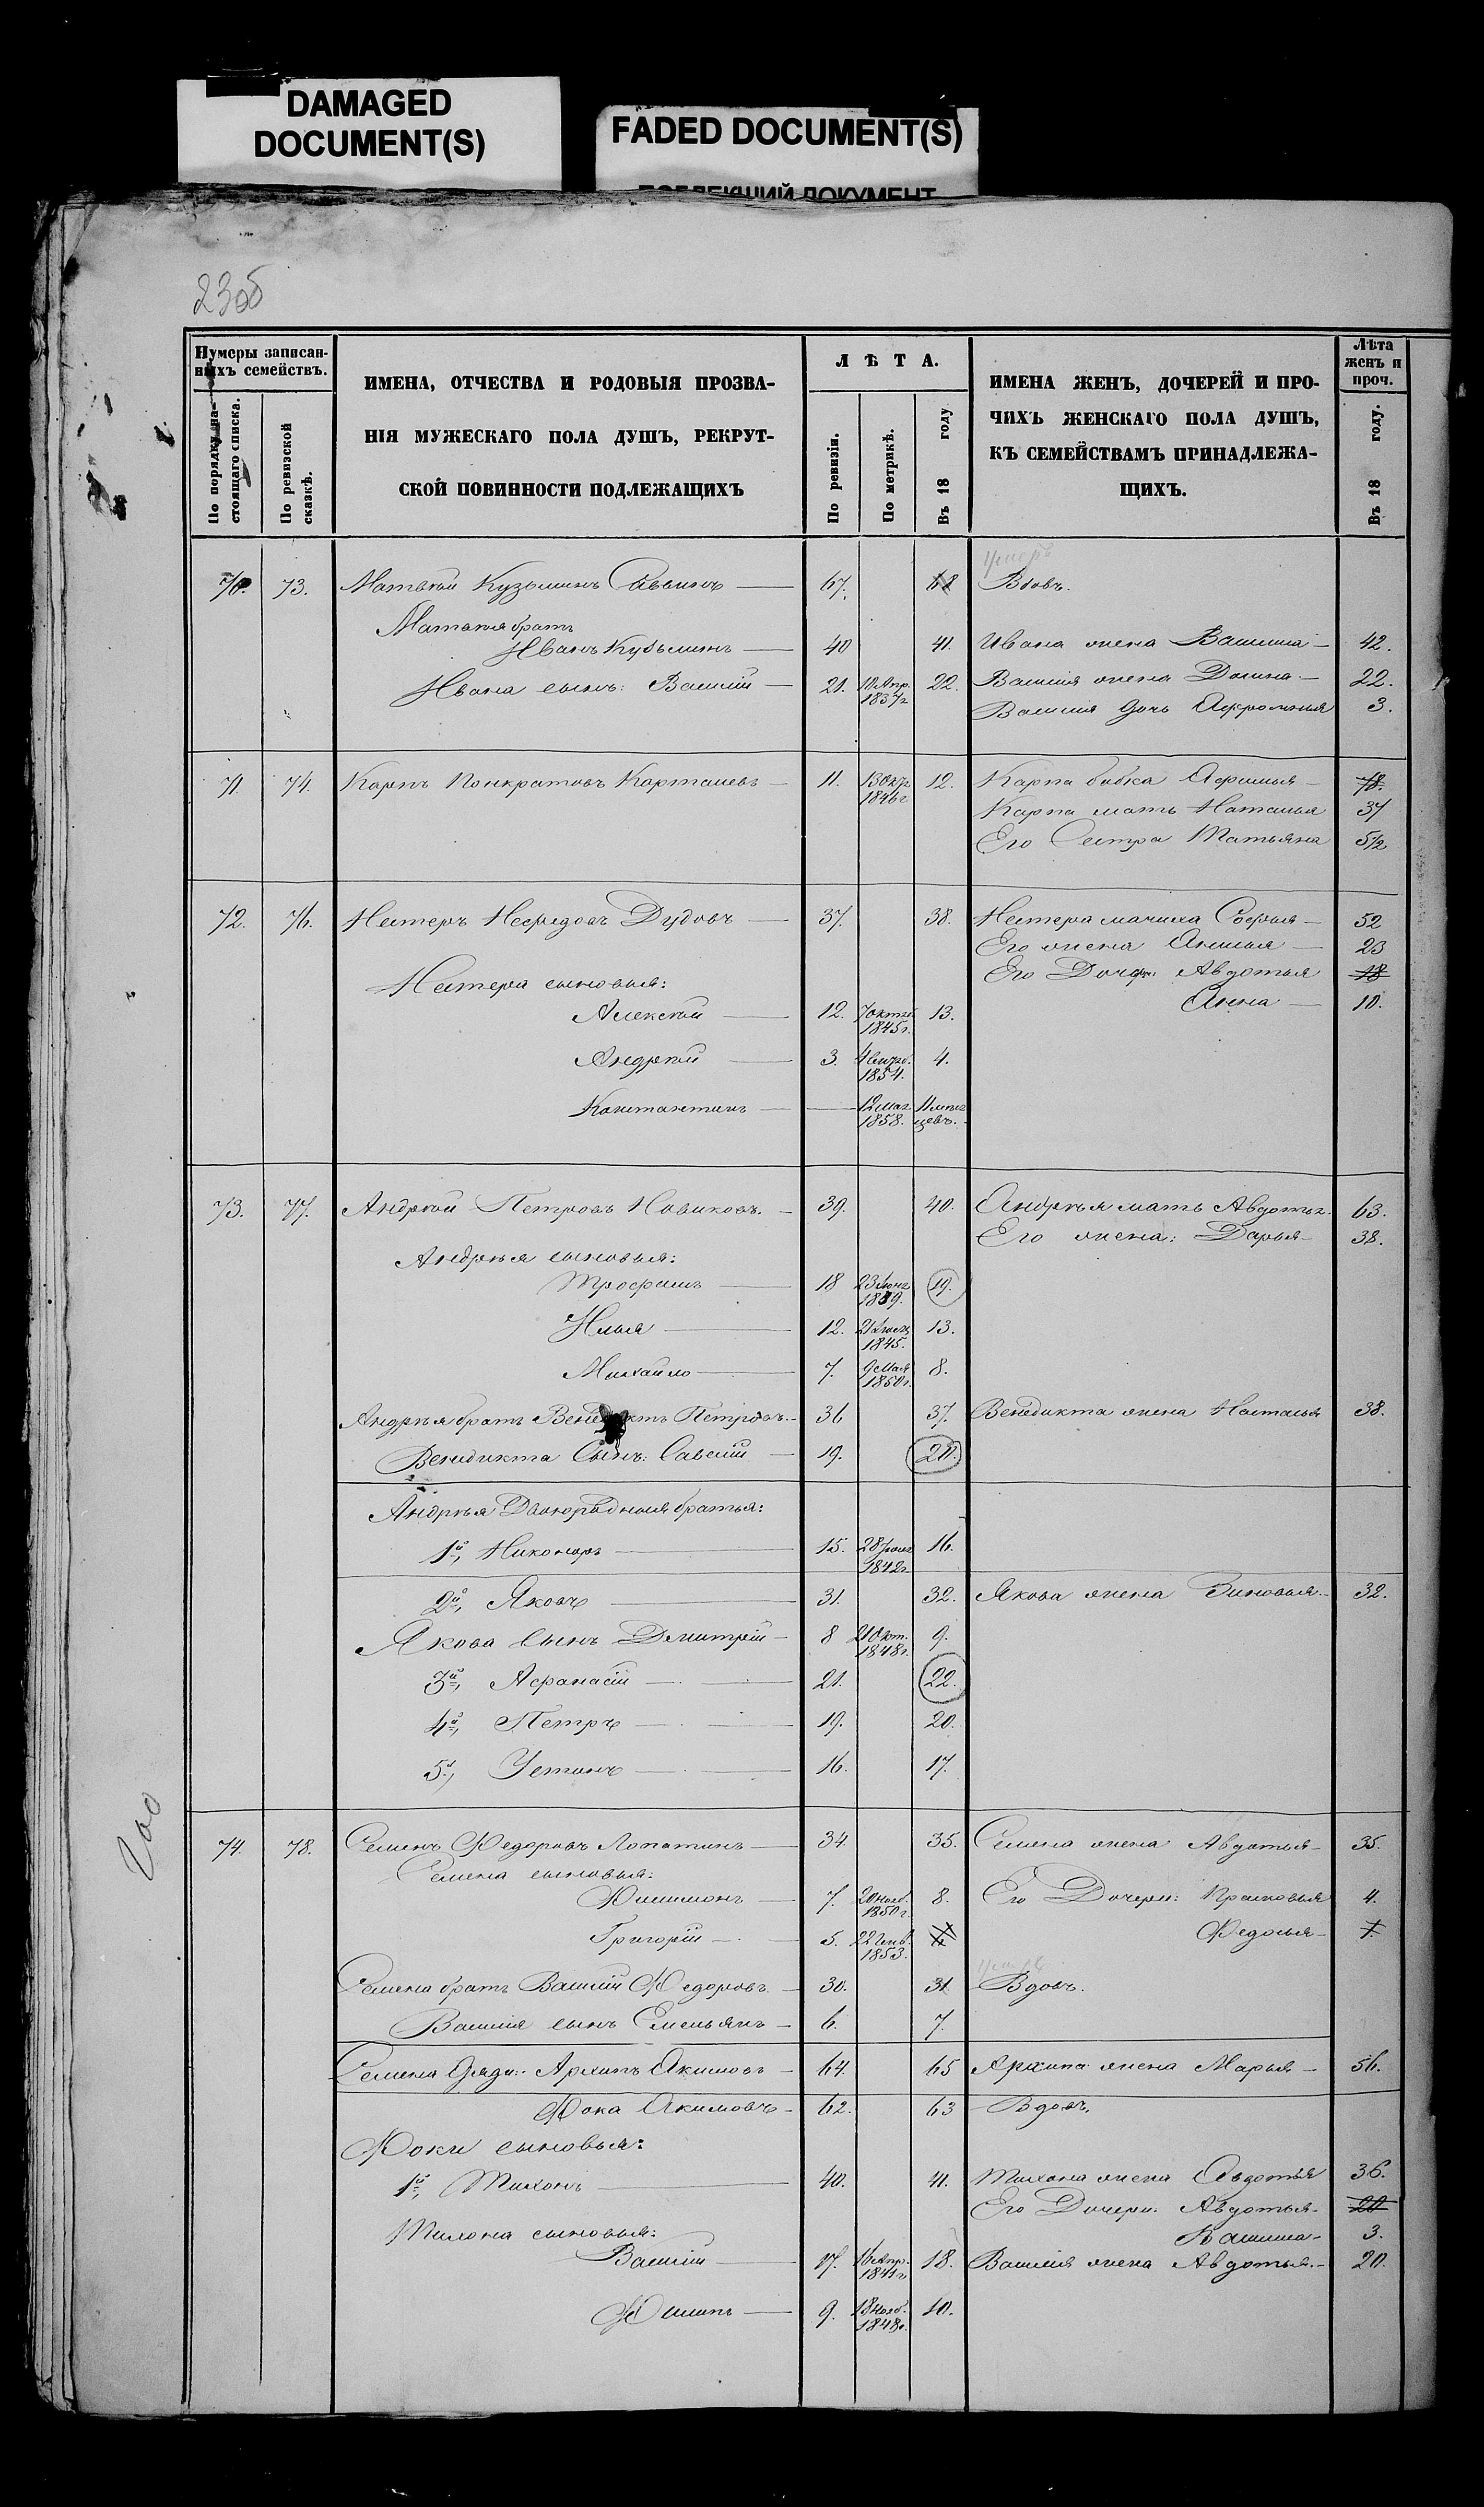 DAMAGED
DOCUMENT(S)
FADED DOCUMENT(S)
230б
Нумеры записан-
ныхъ семействъ.
По порядку на-
стоящаго списка.
По ревизской
сказкѣ.
ИМЕНА, ОТЧЕСТВА И РОДОВЫЯ ПРОЗВА-
НІЯ МУЖЕСКАГО ПОЛА ДУШЪ, РЕКРУТ-
СКОЙ ПОВИННОСТИ ПОДЛЕЖАЩИХЪ
ЛѢТА.
По ревизіи.
По метрикѣ.
Въ 18 году
ИМЕНА ЖЕНЪ, ДОЧЕРЕЙ И ПРО-
ЧИХЪ ЖЕНСКАГО ПОЛА ДУШЪ,
КЪ СЕМЕЙСТВАМЪ ПРИНАДЛЕЖА-
ЩИХЪ.
Лѣта
женъ и
проч.
Въ 18 году.
умеръ
70. 73. Матвѣй Кузьминъ Саввинъ 67. 68 Вдовъ.
Матвѣя братъ
Иванъ Кузьминъ 40 41. Ивана жена Васелиса 42.
Ивана сынъ: Василій 21. 10 Апр. 1837г 22. Василія жена Домна 22.
Василія дочь Афросинья 3.
71. 74. Карпъ Понкратовъ Карташевъ 11. 13 Окт 1846г 12. Карпа бабка Афимья 78.
Карпа мать Наталья 37
Его Сестра Татьяна 5 1/2
72. 76. Нестеръ Дудовъ 37. 38. Нестера мачиха Софья 52
Его жена Анисья 23
Его Дочери: Авдотья 18
Анна 10.
Нестера сыновья:
Алексѣй 12. 7 октяб. 1845г. 13.
Андрѣй 3. 4 1854. 4.
Константинъ 12 мая 1858. 11 мѣся цевъ.
73. 77. Андрѣй Петровъ Новиковъ. 39. 40. Андрѣя мать Авдотья. 63.
Его жена: Дарья 38.
Андрѣя сыновья:
Трофимъ 18 23 1839. 19.
Илья 12. 21 1845. 13.
Михайло 7. 9 Мая 1850г. 8.
Андрѣя братъ Венедиктъ Петровъ. 36 37. Венедикта жена Наталья 38.
Венедикта Сынъ: Савелій 19. 20.
Андрѣя Двоюродныя братья:
1й, Никоноръ 15. 28 1842г. 16.
2й, Яковъ 31. 32. Якова жена Зиновья. 32.
Якова Сынъ Дмитрій 8 21 Окт. 1848г. 9.
3й, Афанасій 21. 22.
4й, Петръ 19. 20.
5й, Устинъ 16. 17.
74. 78. Семенъ Федоровъ Лопатинъ 34 35. Семена жена Авдотья 35.
Семена сыновья:
Филимонъ 7. 20 нояб. 1850г. 8. Его Дочери: Прасковья 4.
Григорій 5. 22 Генв. 1853. 6 Федосья 1.
умеръ
Семена братъ Василій Федоровъ. 30. 31 Вдовъ.
Василія сынъ Емельянъ 6. 7.
Семена Дяди: Архипъ Акимовъ 64. 65 Архипа жена Марья 56.
Фока Акимовъ 62. 63 Вдовъ.
Фоки сыновья:
1й, Тихонъ 40. 41. Тихона жена Авдотья 36.
Его Дочери: Авдотья. 20
Васелиса 3.
Тихона сыновья:
Василій 17. 16 Апр. 1841г. 18. Василія жена Авдотья. 20.
Филипъ 9. 18 нояб. 1848г. 10.